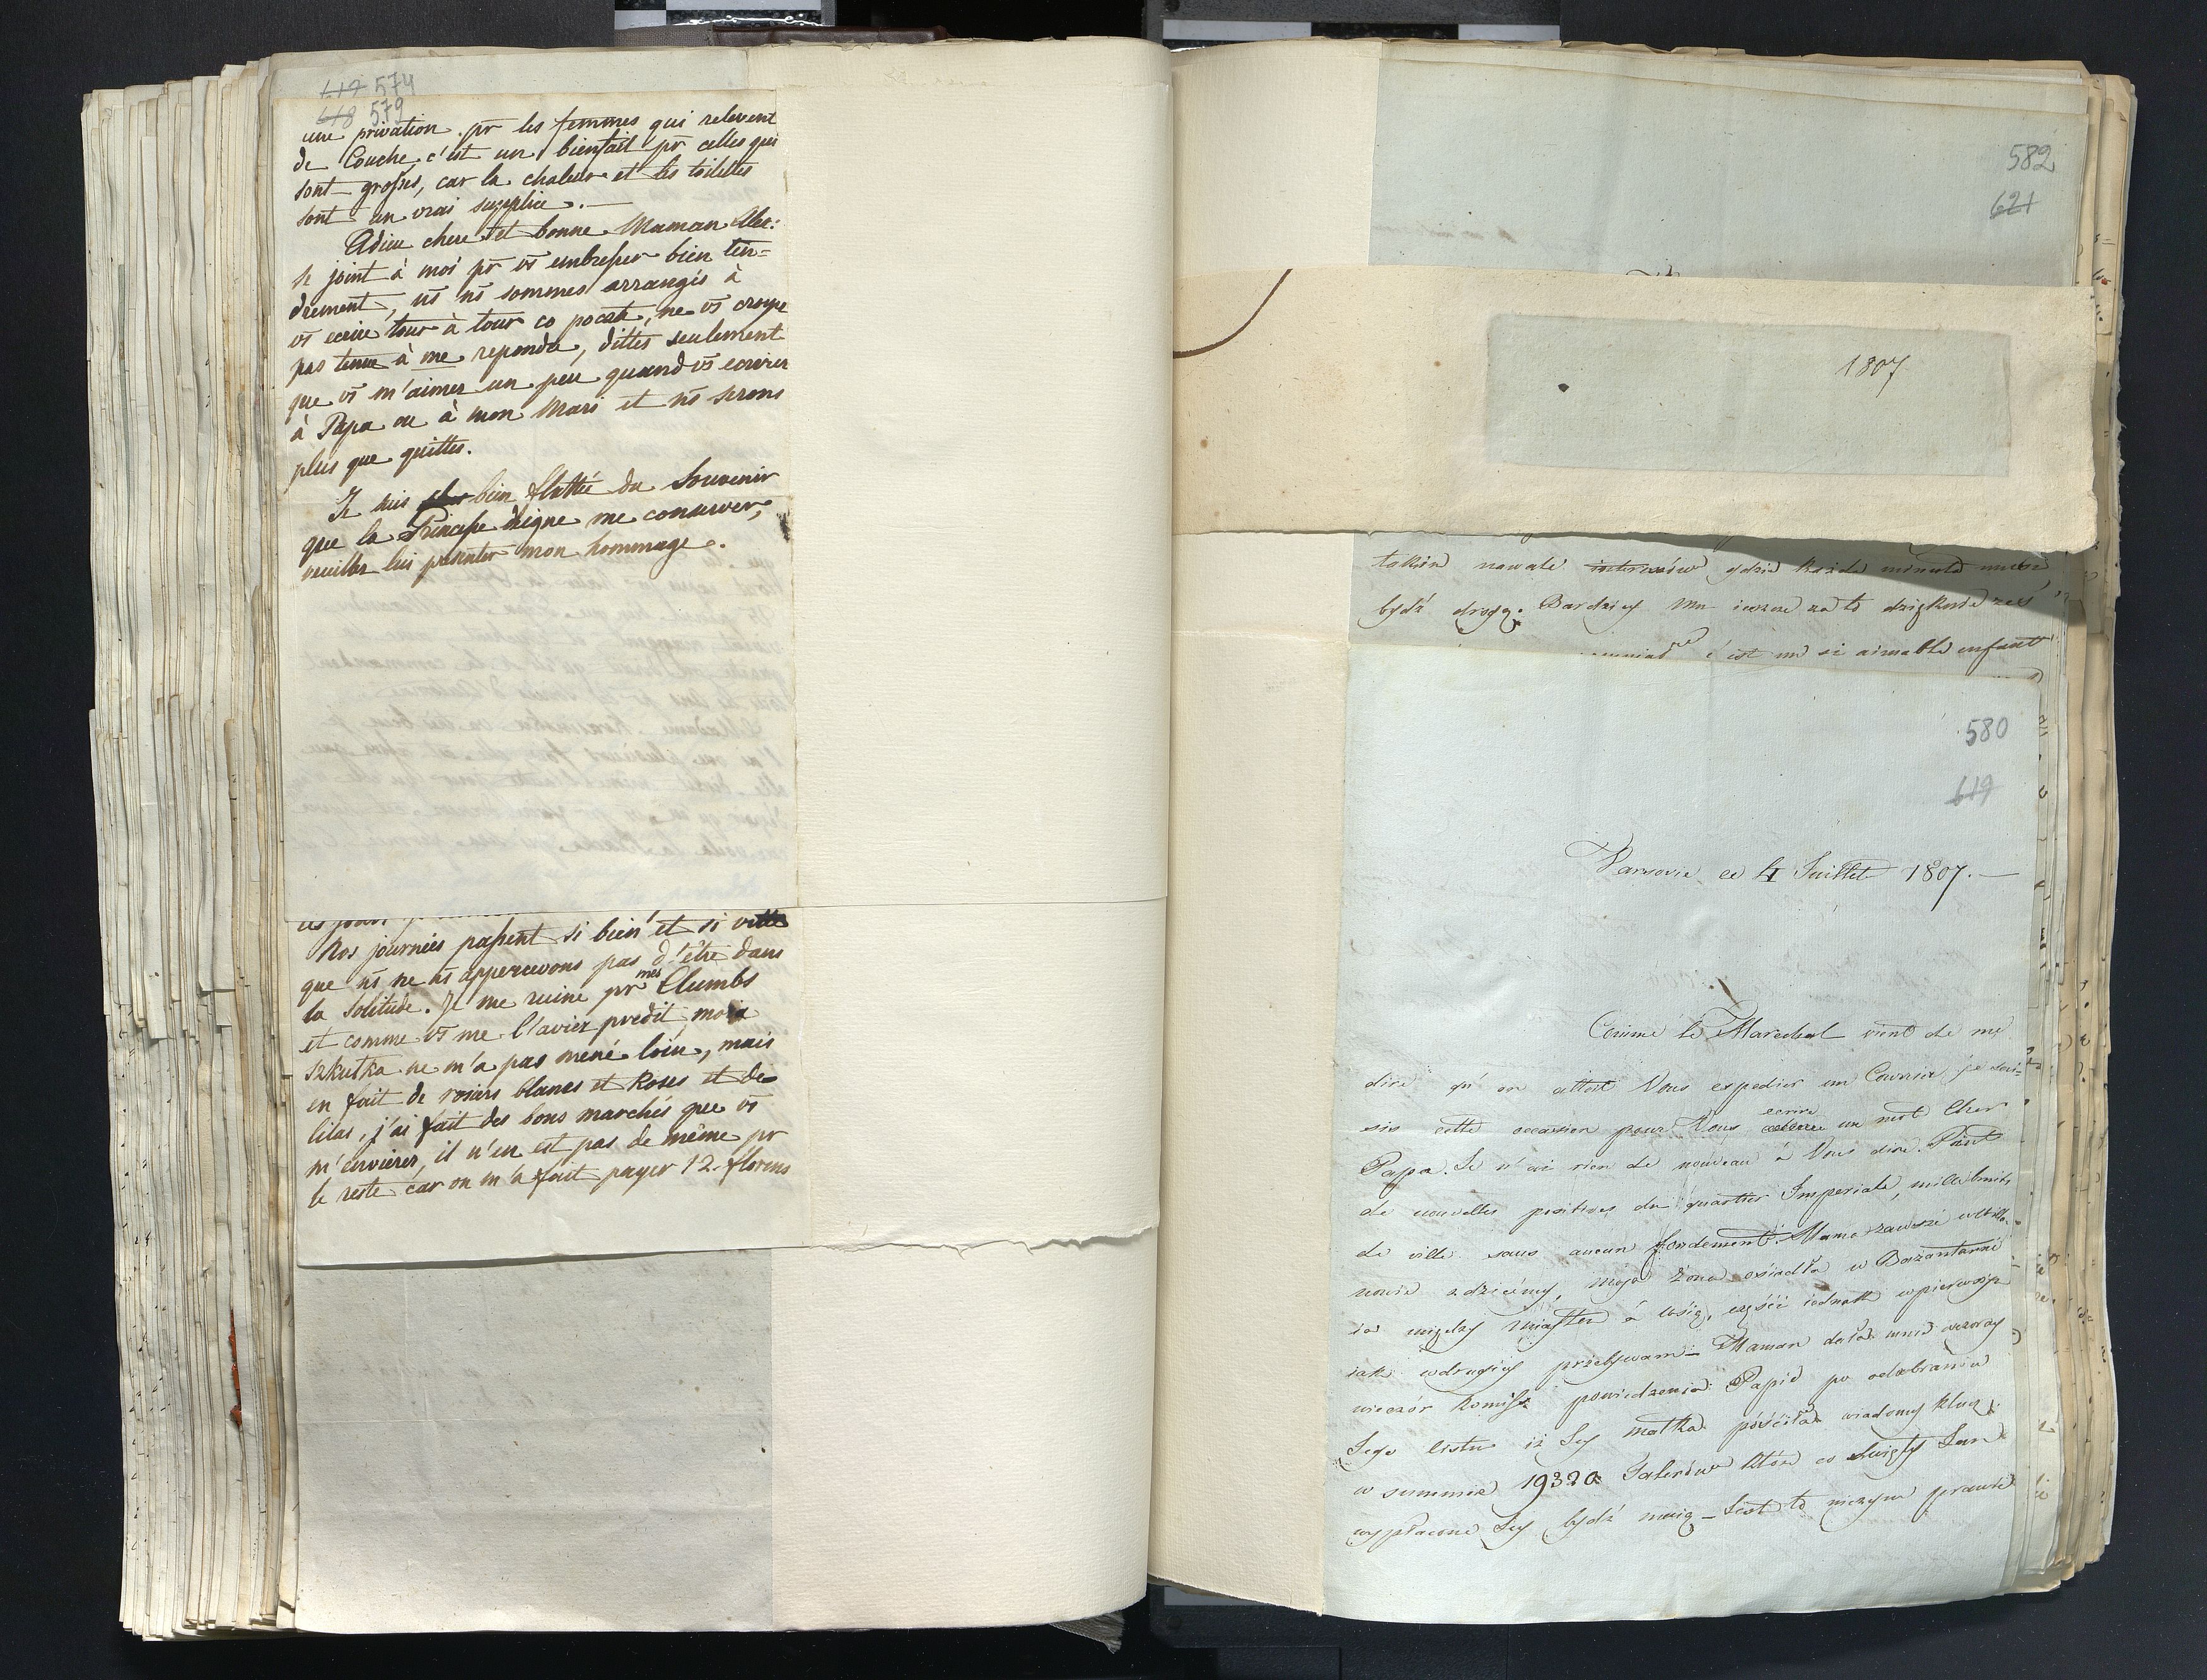 619 574
618 579
une privation pr les femmes qui relevent
de Couche, c'est un bienfait pr celles qui
sont grosses, car la chaleur et les toilettes
sont un vrai supplice. —
Adieu chere et bonne Maman Alex:
se joint à moi pr vs embrasser bien ten=
drement, ns ns sommes arrangés à
vs ecrire tour à tour co poczta, ne vs croyez
pas tenue à me repondre, dittes seulement
que vs m'aimez un peu quand vs ecrirez
à Papa ou à mon Mari et ns serons
plus que quittes.
Je suis bien flattée du Souvenir
que la Princesse daigne me conserver,
veuillez lui presenter mon hommage.
Nos journées passent si bien et si vitte
que ns ne ns appercevons pas d'être dans
la Solitude. Je me ruine pr mes Clumbs
et comme vs me l'aviez predit, moia
Szkutka ne m'a pas mené loin, mais
en fait de rosiers blancs et Roses et de
lilas, j'ai fait des bons marchés que vs
m'envierez, il n'en est pas de même pr
le reste car on m'a fait payer 12. florens
582
621
1807
takim nawale interessów gdzie każda minuta
bydź drogą. Bardziey Mu ieszcze za to dziękuie żeś
c'est un si aimable enfant
580
619
Varsovie ce 4 Juillet 1807. —
Comme le Marechal vient de me
dire qu'on alloit Vous expedier un Courrier je sai-
sis cette occasion pour Vous ecrire un mot Cher
Papa. Je n'ai rien de nouveau à Vous dire. Point
de nouvelles positives du quartier Imperiale, mille bruits
de ville sans aucun fondement. Mama zawsze w Willa-
nowie z dziećmy, moja żona osiadła w Bażantarni
ia między miastem a wsią, część iednak w pierwszym
iak w drugiey przebywam — Maman dała mnie wczoray
wieczór Komiss powiedzenia Papie po odebraniu
Jego listu iż Jey matka puściła wiadomy klucz
w summie 19320 Talerów które co Swięty Jan
wypłacone Jey bydź maią — Jest to niczym prawie